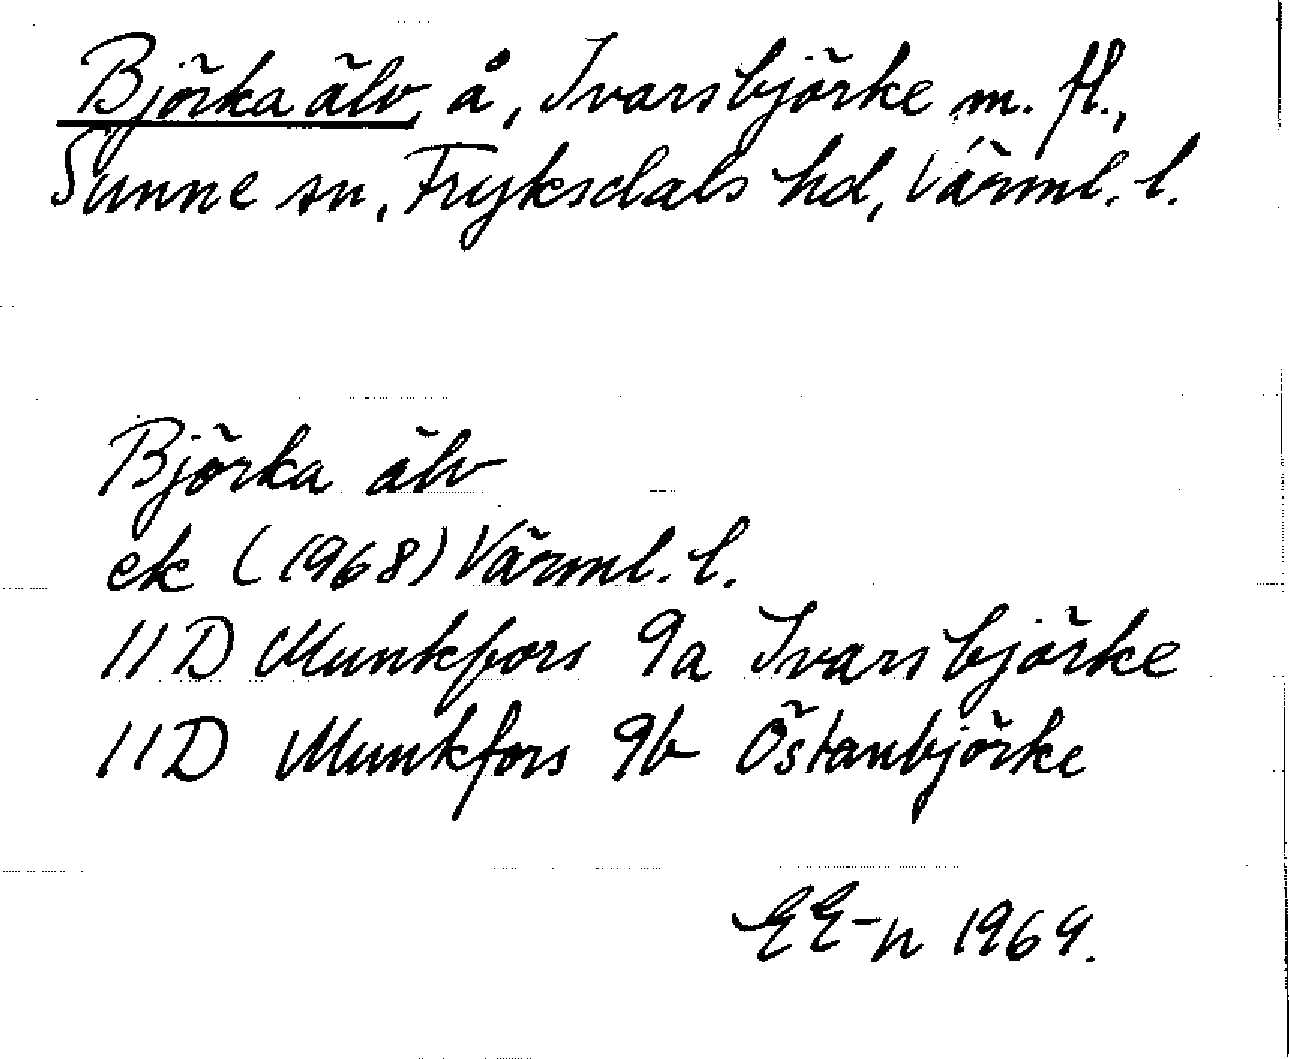 Björka älv, å, Ivarsbjörke m. fl.,
Sunne sn, Fryksdals hd, Värml. l.
Björka älv
ek (1968) Värml. l.
11D Munkfors 9a Ivarsbjörke
11D Munkfors 9b Östanbjörke
EE-n 1969.